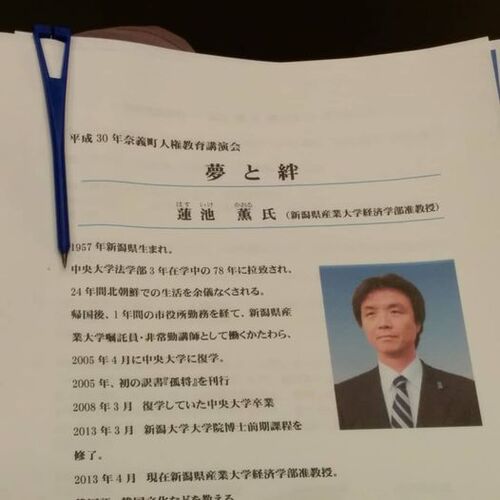 平成30年奈義町人権教育講演会
夢と絆
はす いけ かおる
蓮池 薫 氏 (新潟県産業大学経済学部准教授)
1957年新潟県生まれ。
中央大学法学部3年在学中の78年に拉致され、
24年間北朝鮮での生活を余儀なくされる。
帰国後、1年間の市役所勤務を経て、新潟県産
業大学嘱託員・非常勤講師として働くかたわら、
2005年4月に中央大学に復学。
2005年、初の訳書『孤将』を刊行
2008年3月 復学していた中央大学卒業
2013年3月 新潟大学大学院博士前期課程を
修了。
2013年4月 現在新潟県産業大学経済学部准教授。
韓国語、韓国文化などを教える